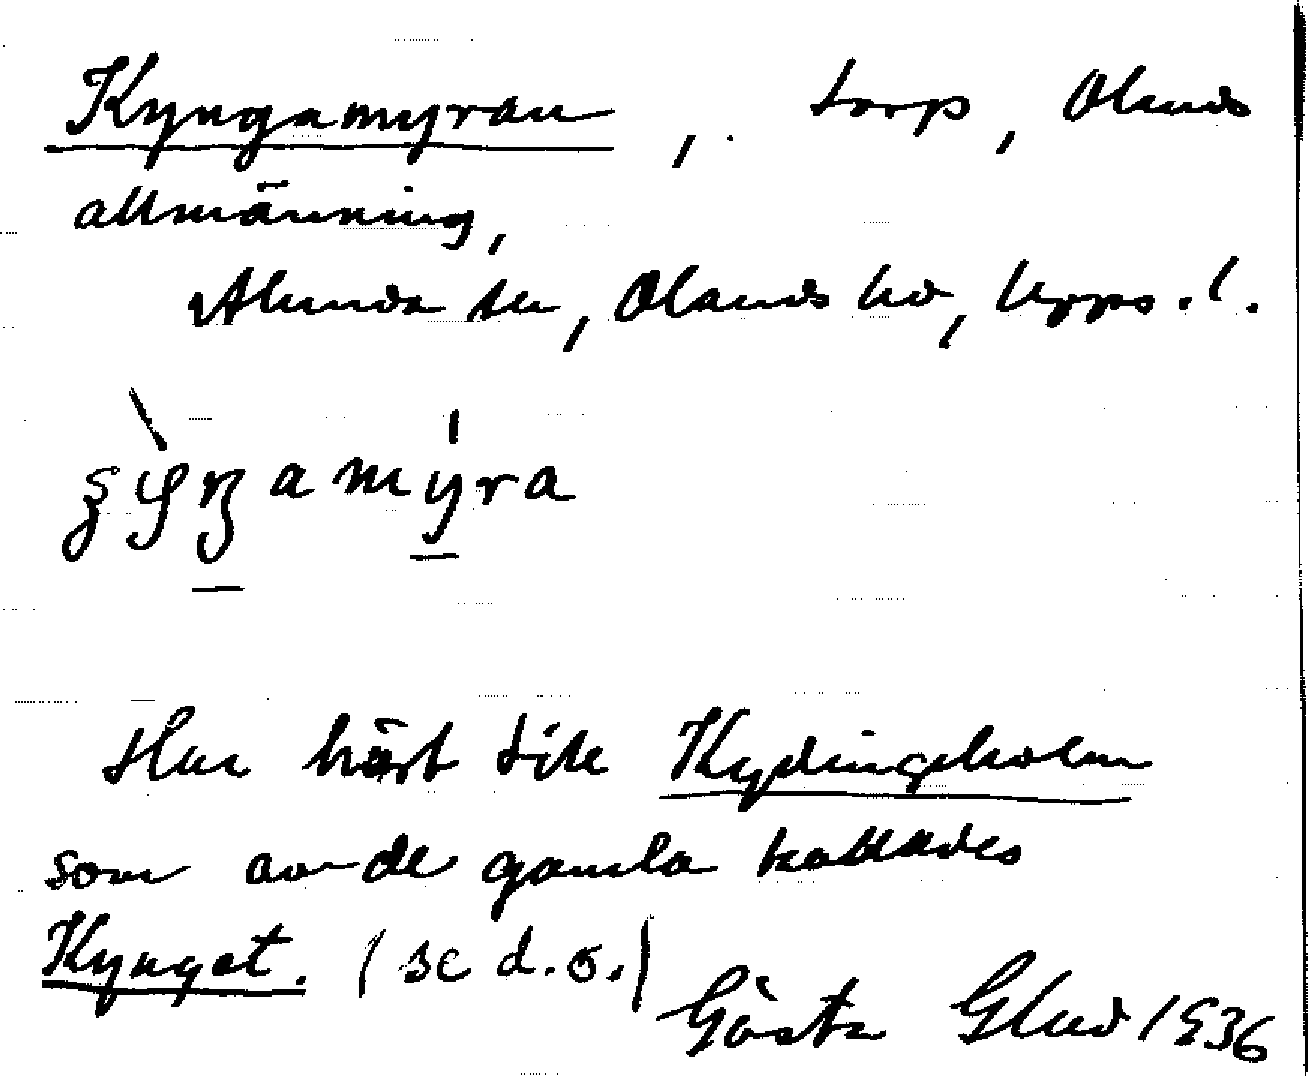 Kyngamyran, torp, Olands
allmänning,
Alunda sn, Olands hd, Upps. l.
Har hört till Kydingeholm
som av de gamla kallades
Kynget. (se d.o.)
Gösta Glad 1936